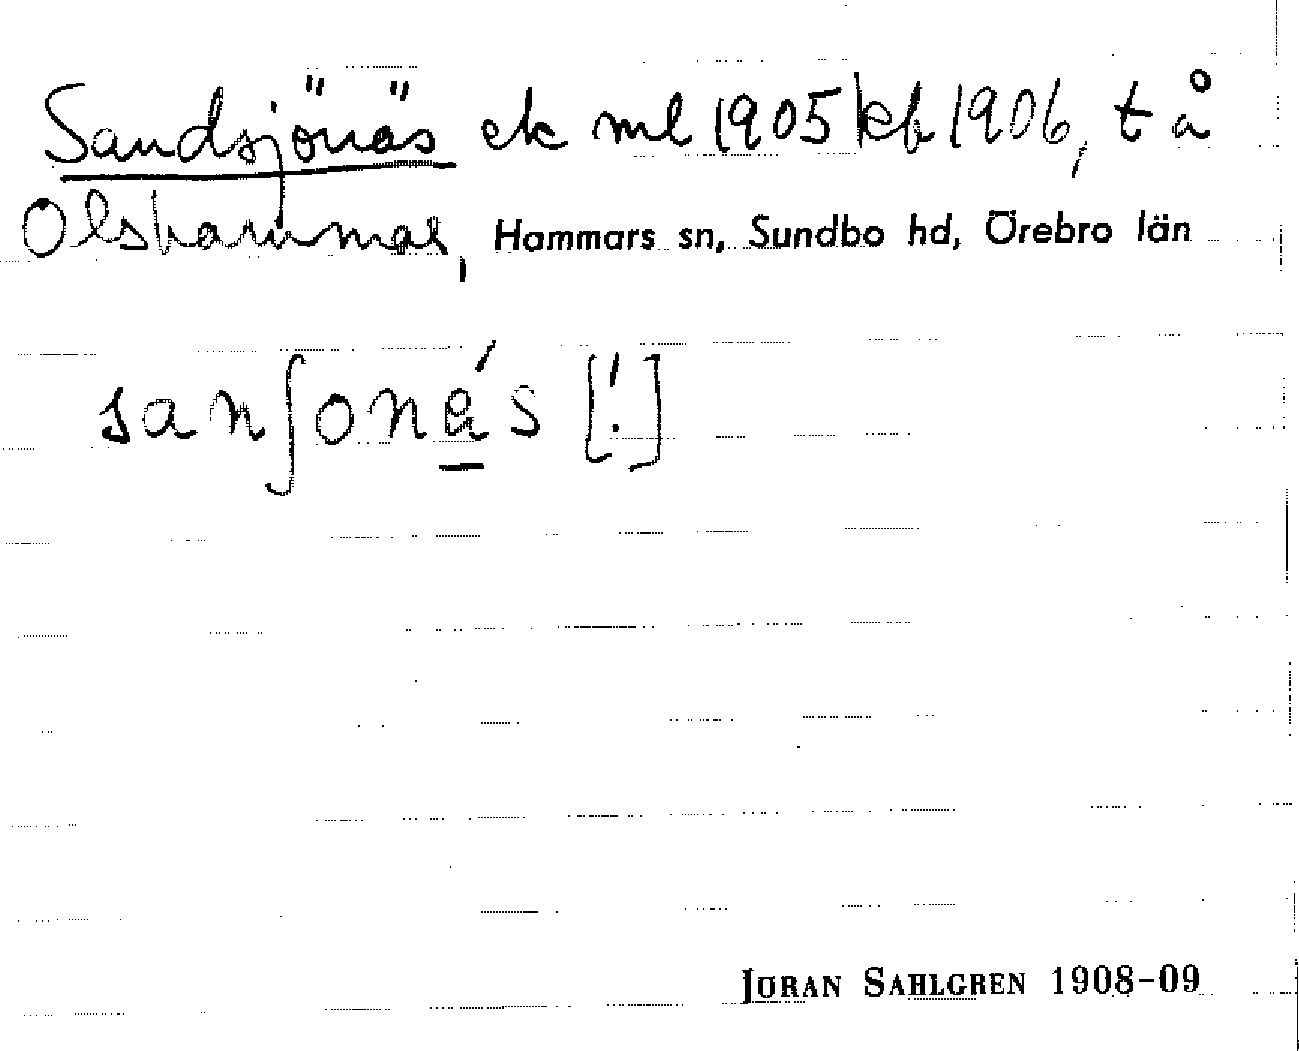 Sandsjönäs ek ml 1905 kb 1906, t å
Olshammar, Hammars sn, Sundbo hd, Örebro län
sanʃonás [!]
JÖRAN SAHLGREN 1908-09